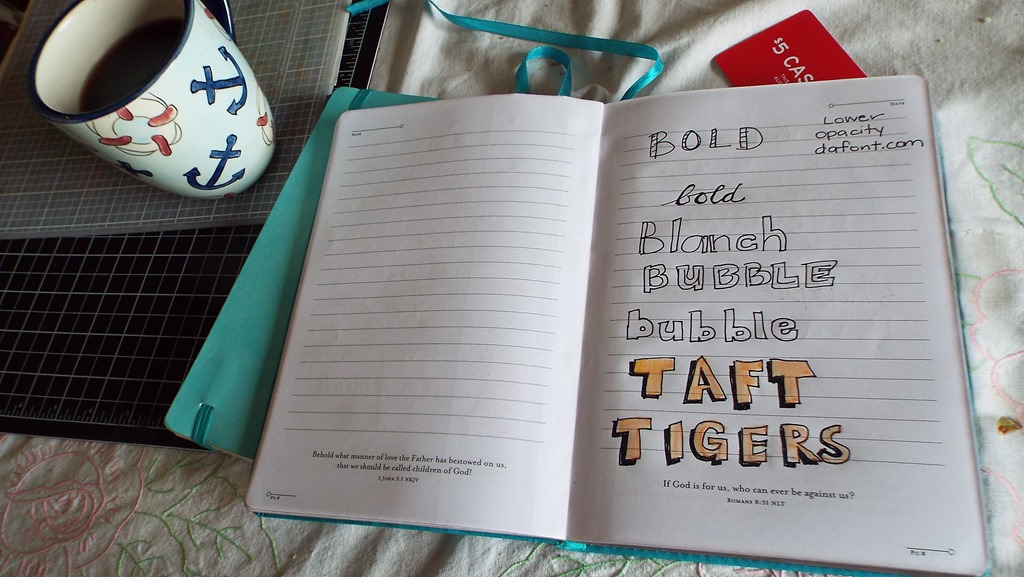 $5 CAS
Date
Behold what manner of love the Father has bestowed on us,
that we should be called children of God!
1 John 3:1 NKJV
Pg.#
Date
Lower
opacity
dafont.com
BOLD
bold
Blanch
BUBBLE
bubble
TAFT
TIGERS
If God is for us, who can ever be against us?
Romans 8:31 NLT
Pg.#